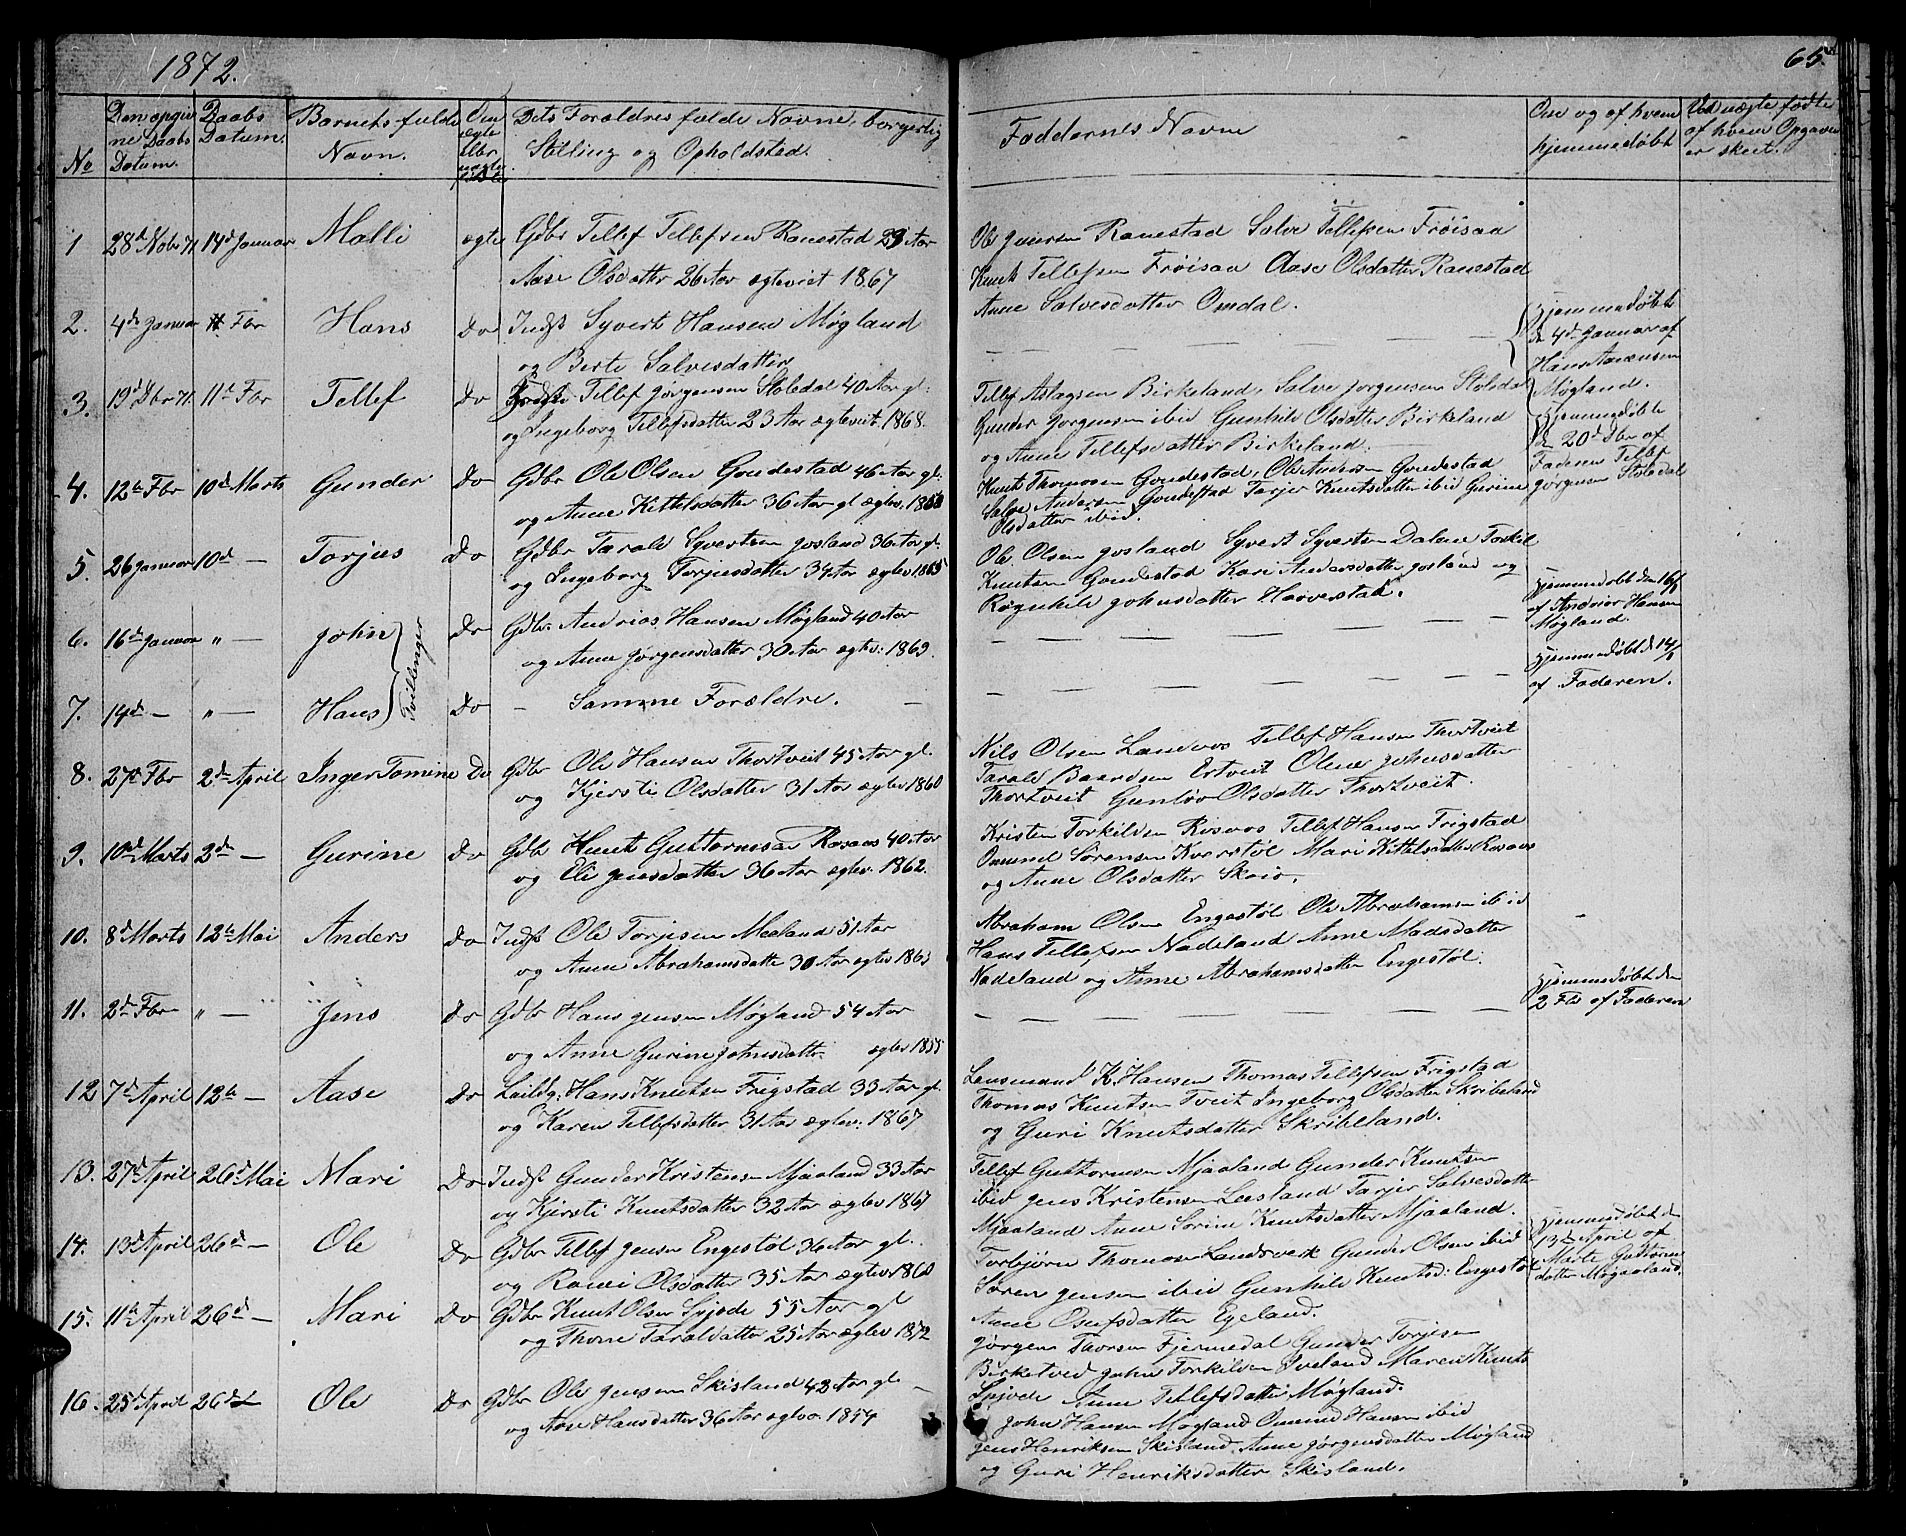 1872.
65.
No
Den opgivne Daabs Datum.
Daabs Datum.
Barnets fulde Navn.
Om ægte eller uægte født
Dets Forældres fulde Navne, borgerlig Stilling og Opholdsted.
Faddernes Navne
Om og af hvem hjemmedøbt
Ved uægte fødte af hvem Opgaven er skeet.
1 28d Nobr 71 14d Januar Malli ægte Gdbr Tellef Tellefsen Ranestad 29 Aar
Aase Olsdatter 26 Aar ægteviet 1867
Ole Jensen Ranestad Salve Tellefsen Frøisaa
Knut Tellefsen Frøisaa Aase Olsdatter Ranestad
Anne Salvesdatter Omdal.
2. 4de Januar Fbr Hans Do Indst Syvert Hansen Møgland
og Berte Salvesdatter
Hjemmedøbt
den 4d Januar af
Hans
Møgland.
3. 19d Dbr 71. 11te Fbr Tellef Do Tellef Jørgensen Stoledal 40 Aar gl:
og Ingeborg Tellefsdatter 23 Aar ægteviet 1868.
Tellef Aslagsen Birkeland, Salve Jørgensen Stoledal
Gunder Jørgensen ibid Gunhild Olsdatter Birkeland
og Anne Tellefsdatter Birkeland.
Hjemmedøbt
den 20d Dbr af
Faderen Tellef
Jørgensen Stoledal
4. 12te Fbr 10d Marts Gunder Do Gdbr Ole Olsen Goudestad 46 Aar gl:
og Anne Kittelsdatter 36 Aar gl ægtev.
Knut Thomasen Goudestad, Ole Andersen Goudestad
Salve Andersen Goudestad Tarjer Knutsdatter ibid Gurine
Olsdatter ibid.
5. 26 Januar 10d — Torjus Do Gdbr Tarald Syvertsen Josland 36 Aar gl.
og Ingeborg Torjusdatter 34 Aar ægtev 1865
Ole Olsen Josland Syvert Syvertsen Dalene Torkil
Knutsen Goudestad Kari Andersdatter Josland og
Røgnhild Johnsdatter Haaverstad.
6. 16de Januar " — John Do Gdbr. Andreas Hansen Møgland 40 Aar
og Anne Jørgensdatter 30 Aar ægtev: 1869.
Hjemmedøbt den 16/1
af Andreas Hansen
Møgland.
Tvillinger
7. 14d — " — Hans Do — Samme Forældre. —
Hjemmedøbt d 14/1
af Faderen.
8. 27de Fbr 2den April Inger Tomine Do Gdbr Ole Hansen Thortveit 45 Aar gl.
og Kjersti Olsdatter 31 Aar ægtev 1860
Nils Olsen Landaas Tellef Hansen Thortveit
Tarald Baardsen Ertveit Oline Johnsdatter
Thortveit Gunløv Olsdatter Thortveit
9. 10d Marts 2den — Gurine Do Gdbr Knut Guttormsen Rosaas 40 Aar
og Eli Jensdatter 36 Aar ægtev. 1862.
Kristen Torkildsen Rosaas Tellef Hansen Frigstad
Omund Sørensen Kverstøl Mari Kittelsdatter Rosaas
og Anne Olsdatter Skaio.
10. 8d Marts 12te Mai Anders Do Indst Ole Torjesen Meeland 51 Aar
og Anne Abrahamsdatter 30 Aar ægtev
Abraham Olsen Engestøl Ole Abrahamsen ibid
Hans Tellefsen Nadeland Anne Madsdatter
Nadeland og Anne Abrahamsdatter Engestøl.
11. 2den Fbr " — Jens Do Gdbr Hans Jensen Møgland 54 Aar
og Anne Gurine Johnsdatter ægtev 1855
Hjemmedøbt den
2 Fbr af Faderen
12 7d April 12te — Aase Do Leildg. Hans Knutsen Frigstad 33 Aar gl.
og Karen Tellefsdatter 31 Aar ægtev: 1867
Lensmand K. Hansen Thomas Tellefsen Frigstad
Thomas Knutsen Tveit Ingeborg Olsdatter Skribeland
og Guri Knutsdatter Skribeland.
13. 27d April 26d Mai Mari Do Indst Gunder Kristensen Mjaaland 33 Aar
og Kjersti Knutsdatter 32 Aar ægtev 1867
Tellef Guttormsen Mjaaland Gunder Knutsen
ibid Jens Kristensen Leesland Tarjer Salvesdatter
Mjaaland Anne Sorine Knutsdatter Mjaaland.
14. 13d April 26d — Ole Do Gdbr Tellef Jensen Engestøl 36 Aar gl.
og Ranei Olsdatter 35 Aar ægtev 1860
Torbjørn Thomasen Landsverk Gunder Olsen ibid
Søren Jensen ibid Gunhild Knutsd: Engestøl
Anne Osufsdatter Egeland.
Hjemmedøbt den
13de April af
Marte Guttorms
datter
15. 11te April 26d — Mari Do Gdbr Knut Olsen Spjode 55 Aar gl
og Thone Taraldsdatter 25 Aar ægtev 1872
Jørgen Thorsen Fjermedal Gunder Torjesen
Birketved John Torkildsen Iveland Maren Knuts
Spjode Anne Tellefsdatter Møgland.
16. 25d April 26d — Ole Do Gdbr Ole Jensen Skisland 43 Aar gl —
og Aase Hansdatter 36 Aar ægtev. 1854
John Hansen Møgland Omund Hansen ibid
Jens Henriksen Skisland. Anne Jørgensdatter Møgland
og Guri Henriksdatter Skisland.